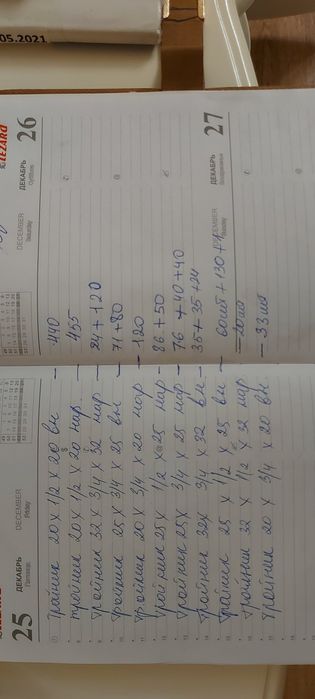 05.2021
LEZARD
25 ДЕКАБРЬ DECEMBER
Пятница Friday
26 ДЕКАБРЬ DECEMBER
Суббота Saturday
27 ДЕКАБРЬ DECEMBER
Воскресенье Sunday
Тройник 20 x 1/2 x 20 вн — 440
тройник 20 x 1/2 x 20 нар — 455
Тройник 32 x 3/4 x 32 нар — 24 + 120
Тройник 25 x 3/4 x 25 вн — 71 + 80
Тройник 20 x 3/4 x 20 нар — 120
Тройник 25 x 1/2 x 25 нар — 86 + 50
Тройник 25 x 3/4 x 25 нар — 76 + 40 + 40
Тройник 32 x 3/4 x 32 вн — 35 + 35 + 24
Тройник 25 x 1/2 x 25 вн — 60шт + 130 +
Тройник 32 x 1/2 x 32 нар — 20шт
Тройник 20 x 3/4 x 20 вн — 33шт